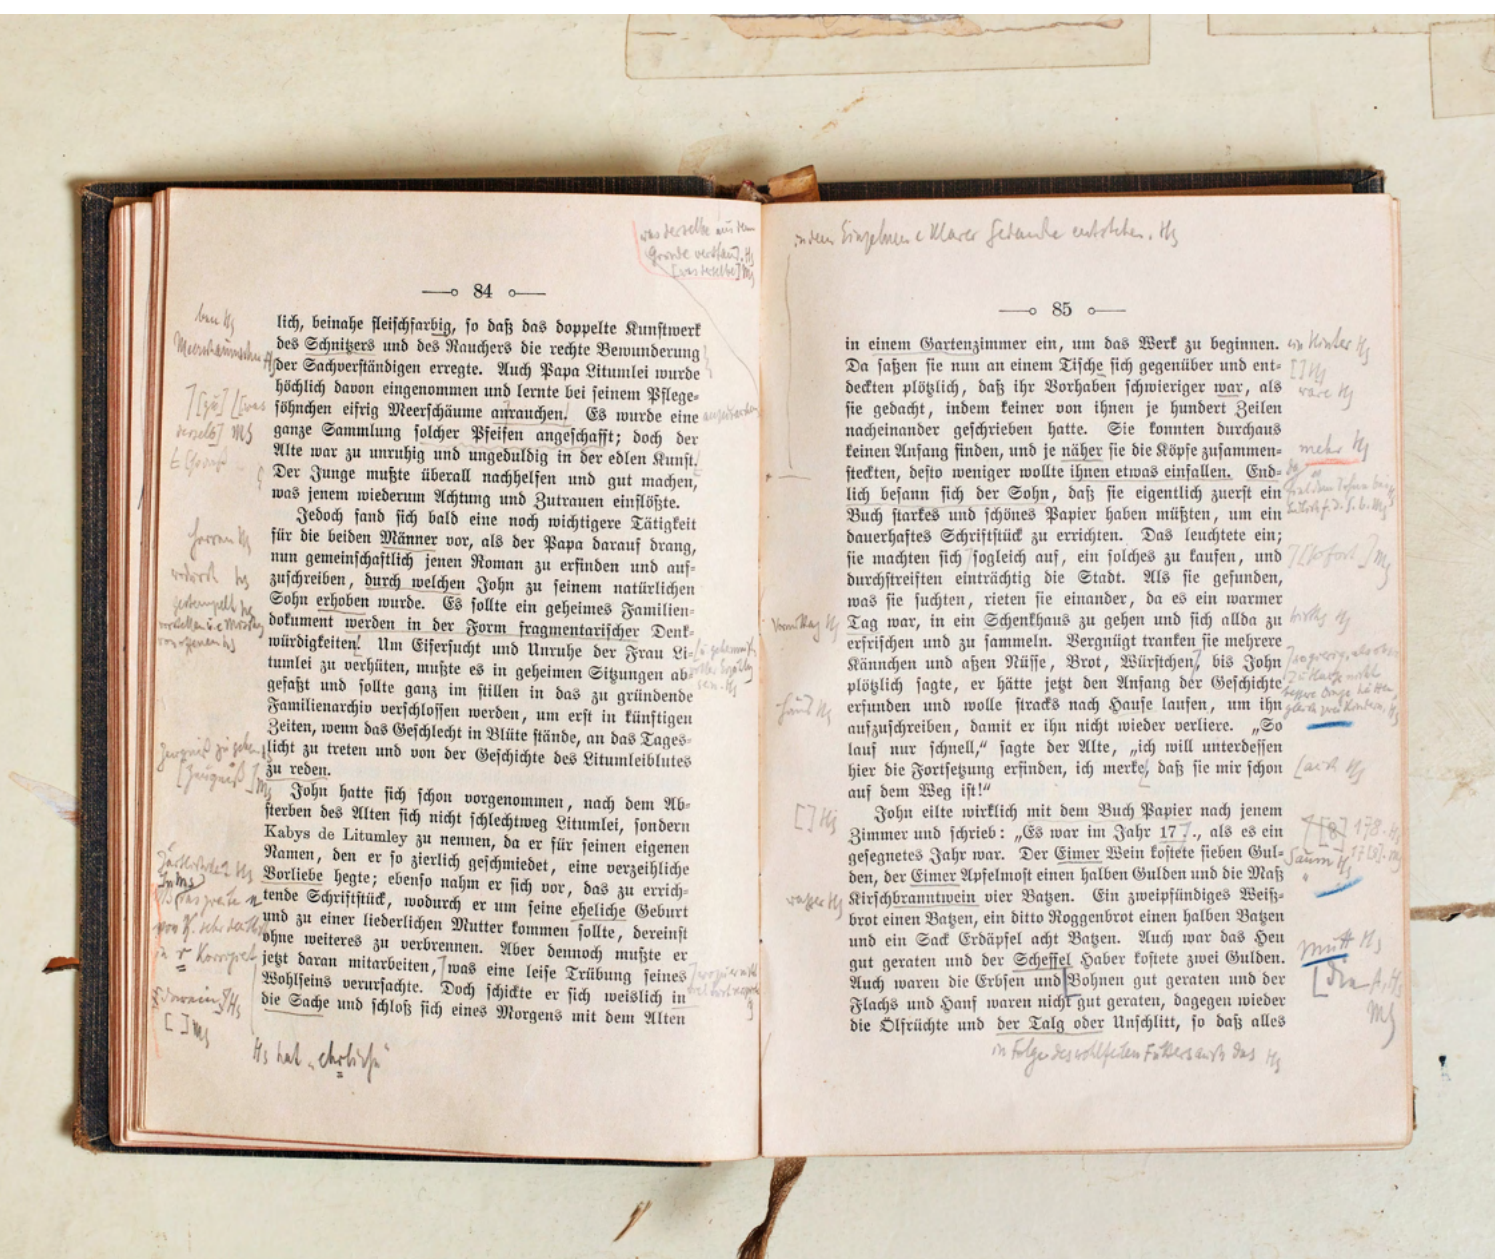 was derselbe aus dem
Grunde verstand. Hs
[was derselbe] Ms
84
lich, beinahe fleischfarbig, so daß das doppelte Kunstwerk
des Schnitzers und des Rauchers die rechte Bewunderung
der Sachverständigen erregte. Auch Papa Litumlei wurde
höchlich davon eingenommen und lernte bei seinem Pflege-
söhnchen eifrig Meerschäume anrauchen. Es wurde eine
ganze Sammlung solcher Pfeifen angeschafft; doch der
Alte war zu unruhig und ungeduldig in der edlen Kunst.
Der Junge mußte überall nachhelfen und gut machen,
was jenem wiederum Achtung und Zutrauen einflößte.
Jedoch fand sich bald eine noch wichtigere Tätigkeit
für die beiden Männer vor, als der Papa darauf drang,
nun gemeinschaftlich jenen Roman zu erfinden und auf-
zuschreiben, durch welchen John zu seinem natürlichen
Sohn erhoben wurde. Es sollte ein geheimes Familien-
dokument werden in der Form fragmentarischer Denk-
würdigkeiten. Um Eifersucht und Unruhe der Frau Li-
tumlei zu verhüten, mußte es in geheimen Sitzungen ab-
gefaßt und sollte ganz im stillen in das zu gründende
Familienarchiv verschlossen werden, um erst in künftigen
Zeiten, wenn das Geschlecht in Blüte stände, an das Tages-
licht zu treten und von der Geschichte des Litumleiblutes
zu reden.
John hatte sich schon vorgenommen, nach dem Ab-
sterben des Alten sich nicht schlechtweg Litumlei, sondern
Kabys de Litumley zu nennen, da er für seinen eigenen
Namen, den er so zierlich geschmiedet, eine verzeihliche
Vorliebe hegte; ebenso nahm er sich vor, das zu errich-
tende Schriftstück, wodurch er um seine eheliche Geburt
und zu einer liederlichen Mutter kommen sollte, dereinst
ohne weiteres zu verbrennen. Aber dennoch mußte er
jetzt daran mitarbeiten, was eine leise Trübung seines
Wohlseins verursachte. Doch schickte er sich weislich in
die Sache und schloß sich eines Morgens mit dem Alten
Hs hat „ehrliche"
Herren Hs
[Zeugniß] Ms
[ ] Ms
Gedanke entstehen. Hs
85
in einem Gartenzimmer ein, um das Werk zu beginnen.
Da saßen sie nun an einem Tische sich gegenüber und ent-
deckten plötzlich, daß ihr Vorhaben schwieriger war, als
sie gedacht, indem keiner von ihnen je hundert Zeilen
nacheinander geschrieben hatte. Sie konnten durchaus
keinen Anfang finden, und je näher sie die Köpfe zusammen-
steckten, desto weniger wollte ihnen etwas einfallen. End-
lich besann sich der Sohn, daß sie eigentlich zuerst ein
Buch starkes und schönes Papier haben müßten, um ein
dauerhaftes Schriftstück zu errichten. Das leuchtete ein;
sie machten sich sogleich auf, ein solches zu kaufen, und
durchstreiften einträchtig die Stadt. Als sie gefunden,
was sie suchten, rieten sie einander, da es ein warmer
Tag war, in ein Schenkhaus zu gehen und sich allda zu
erfrischen und zu sammeln. Vergnügt tranken sie mehrere
Kännchen und aßen Nüsse, Brot, Würstchen, bis John
plötzlich sagte, er hätte jetzt den Anfang der Geschichte
erfunden und wolle stracks nach Hause laufen, um ihn
aufzuschreiben, damit er ihn nicht wieder verliere. „So
lauf nur schnell,“ sagte der Alte, „ich will unterdessen
hier die Fortsetzung erfinden, ich merke, daß sie mir schon
auf dem Weg ist!“
John eilte wirklich mit dem Buch Papier nach jenem
Zimmer und schrieb: „Es war im Jahr 17 ., als es ein
gesegnetes Jahr war. Der Eimer Wein kostete sieben Gul-
den, der Eimer Apfelmost einen halben Gulden und die Maß
Kirschbranntwein vier Batzen. Ein zweipfündiges Weiß-
brot einen Batzen, ein ditto Roggenbrot einen halben Batzen
und ein Sack Erdäpfel acht Batzen. Auch war das Heu
gut geraten und der Scheffel Haber kostete zwei Gulden.
Auch waren die Erbsen und Bohnen gut geraten und der
Flachs und Hanf waren nicht gut geraten, dagegen wieder
die Ölfrüchte und der Talg oder Unschlitt, so daß alles
in Folge des wohlfeilen Futters auch das Hs
ein Hinter Hs
[ ] Hs
wäre Hs
mehr Hs
[sofort] Ms
Vormittag Hs
Haus Hs
[auch Hs
[ ] Hs
[8] 178. Hs
Saum Hs
wasser Hs
Mütt Hs